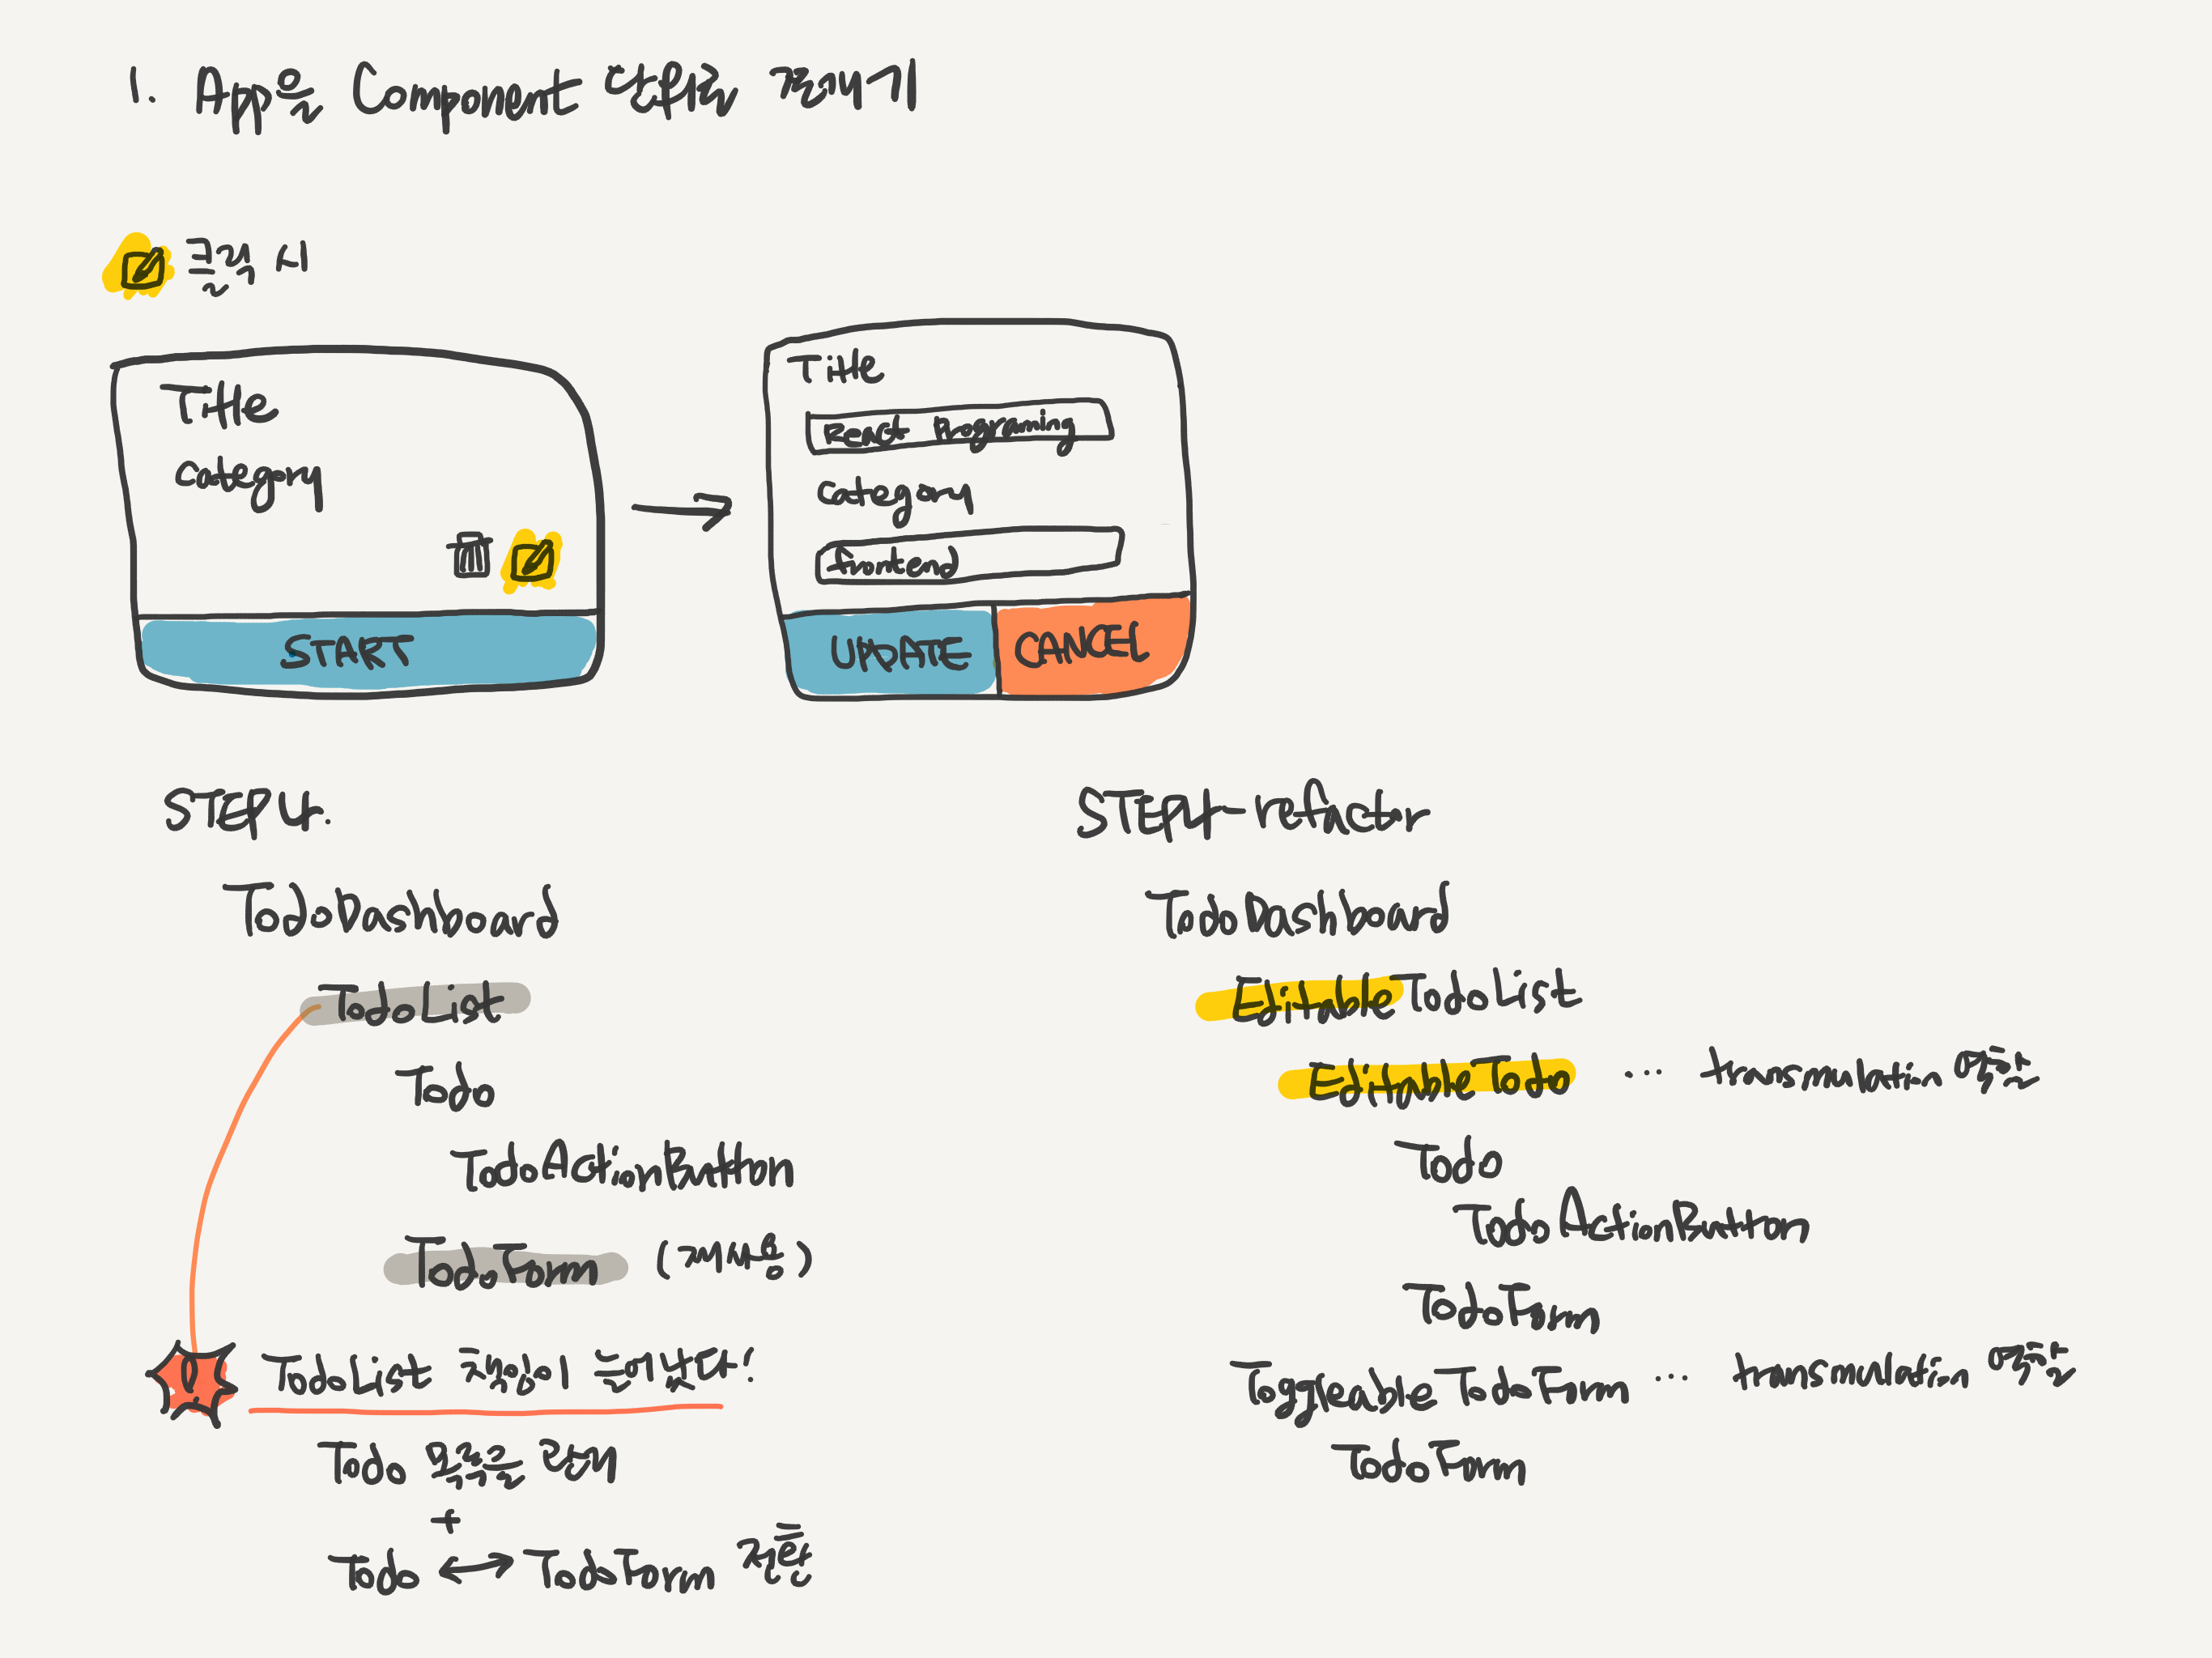 1. App을 Component 단위로 쪼개기
클릭 시
Title
Category
START
Title
React Programing
Category
frontend
UPDATE CANCEL
STEP4.
TodoDashboard
TodoList
Todo
TodoActionButton
TodoForm (재사용)
! TodoList 책임이 늘어났다!
Todo 목록을 렌더
+
Todo ↔ TodoForm 전환
STEP4-refactor
TodoDashboard
EditableTodoList
EditableTodo ... transmulatin 역할
Todo
TodoActionButton
TodoForm
ToggleableTodoForm ... transmulatin 역할
TodoForm